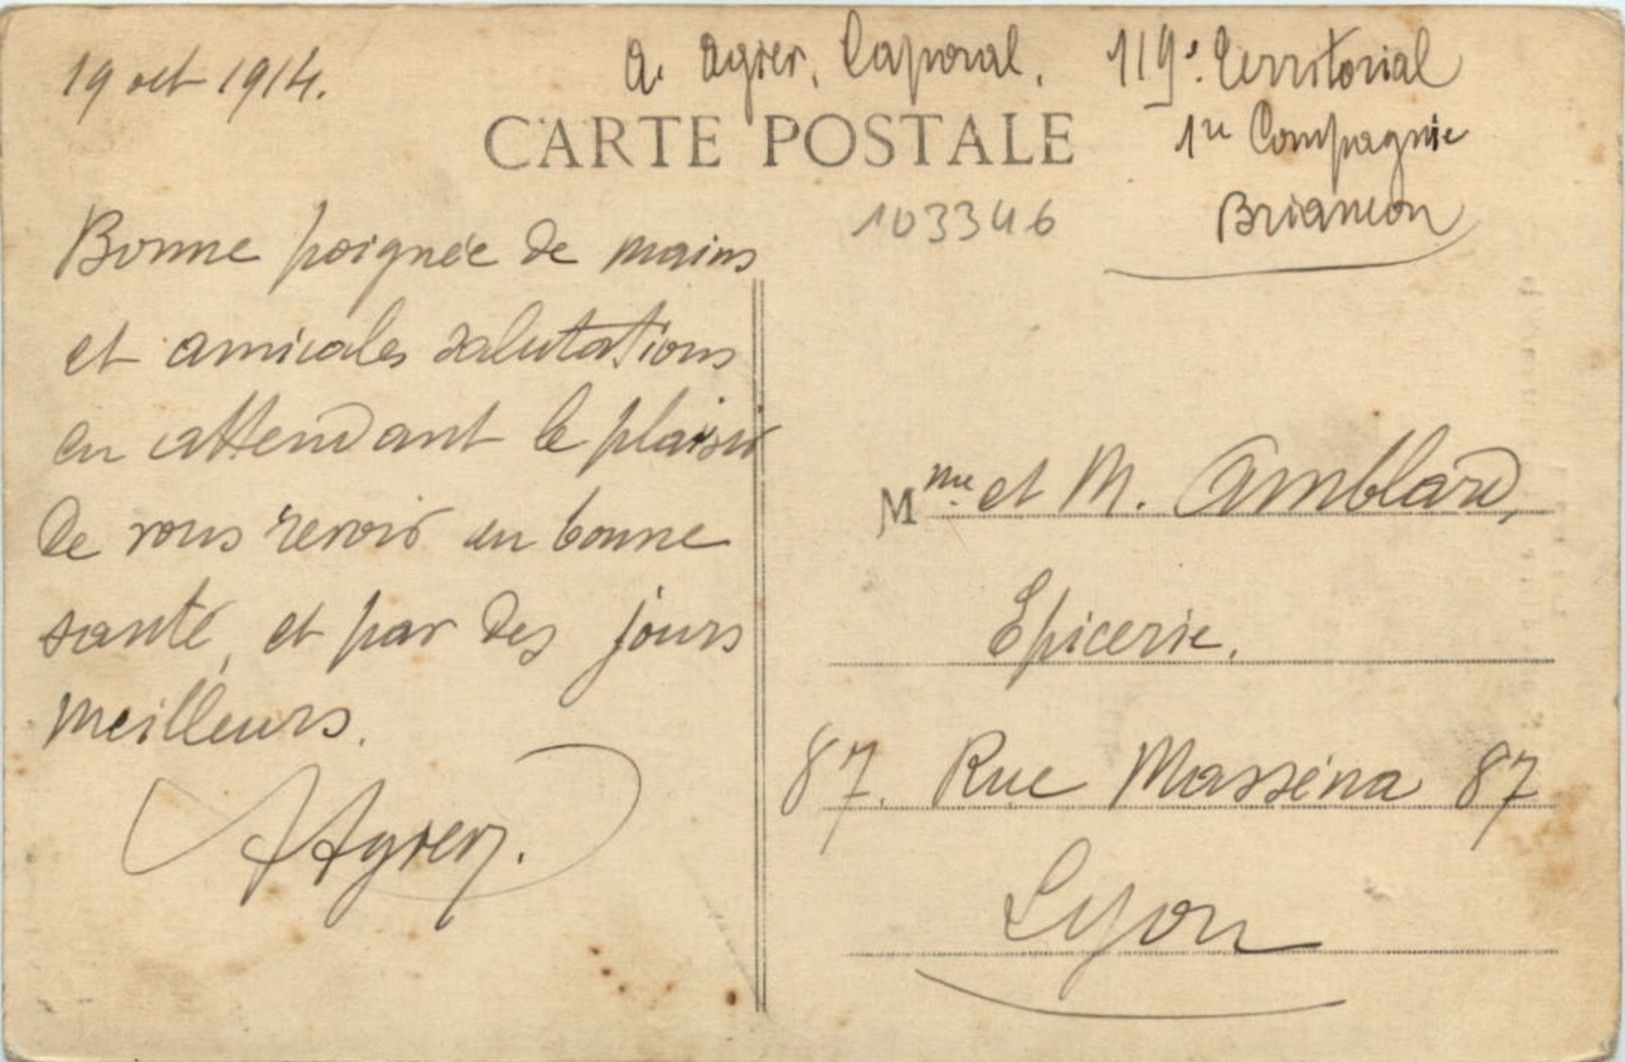 19 oct 1914.
A. Agier, Caporal, 119e. territorial
1re Compagnie
Briançon
CARTE POSTALE
103346
Bonne poignée de mains
et amicales salutations
en attendant le plaisir
de vous revoir en bonne
santé, et par des jours
meilleurs.
Mme. et M. Amblard,
Epicerie.
87. Rue Masséna 87
Lyon